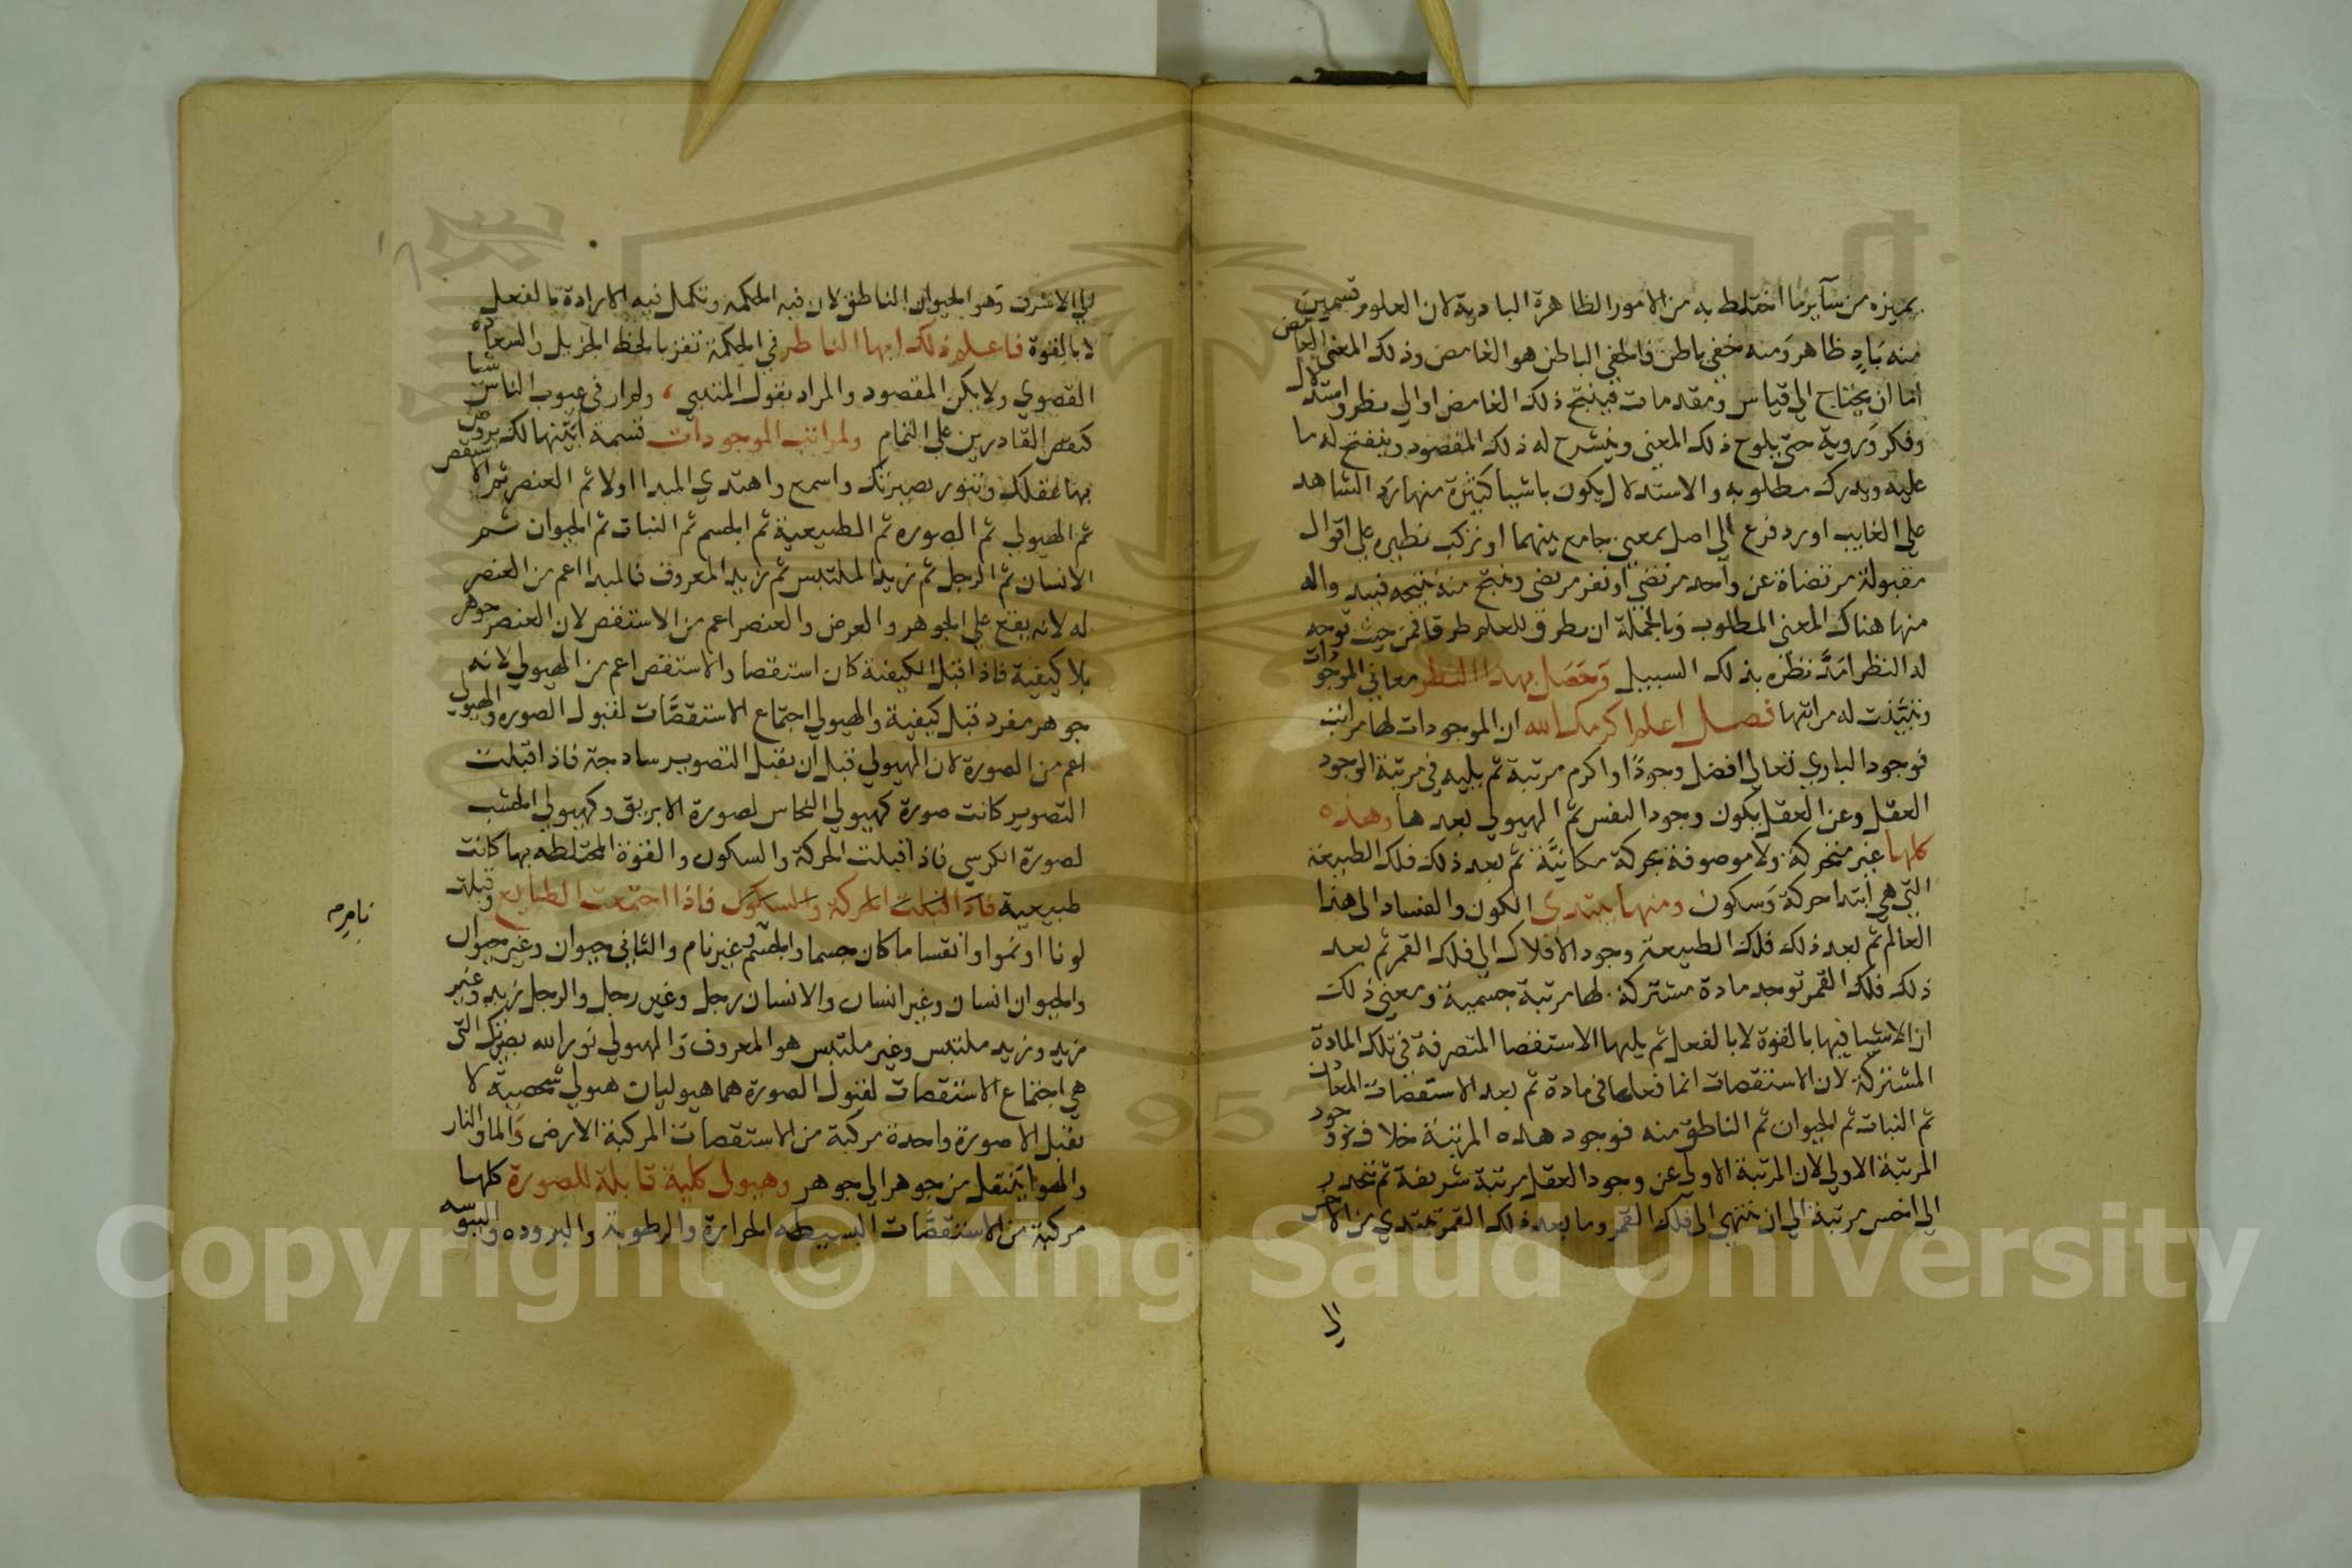 يميزه من سآير ما اختلط به من الامور الظاهرة البادية لان العلوم قسمين
منه بَادٍ ظاهر وَمنه خفي باطن فالخفي الباطن هو الغامض وذلك المعنى الغامض
اما ان يحتاج الي قياس ومقدمات فينتج ذلك الغامض او الي نظر واستدلال
وفكر وَروية حتى يلوح ذلك المعنى وينشرح له ذلك المقصود وينفتح له ما
عليه ويدرك مطلوبه والاستدلال يكون باشيا كثيرة منها رَد الشاهد
علي الغايب او رد فرع الي اصل بمعنى جامع بينهما او تركب نظيره علي اقوال
مقبولة مرتضاة عن وآحد مرتضي او نفر مرتضى وينتج منه نتيجه
منها هناك المعنى المطلوب وَبالجملة ان نطرق للعلم طرقا فمن حيث توجه
له النظر امَدَّ نظره بذلك السبيل وَحَصَل بهذا النظر معاني الموجودات
له مراتبها فصل اعلم اكرمك الله ان الموجودات لها مراتب
فوجود الباري تعالي افضل وجودًا واكرم مرتبة ثم يليه في مرتبة الوجود
العقل وعن العقل يكون وجود النفس ثم الهيولي بعدها وهذه
كلها غير متحركة ولا موصوفة بحركة مكانيَّة ثم بعد ذلك فلك الطبيعة
التي هي ابتدا حركة وَسكون ومنها يبتدى الكون والفساد الى هذا
العالم ثم بعد ذلك فلك الطبيعة وجود الافلاك الي فلك القمر ثم بعد
ذلك فلك القمر توجد مادة مشتركة لها مرتبة جسمية ومعنى ذلك
ان الاشيا فيها بالقوة لا بالفعل ثم يليها الاستقصا المتصرفة في تلك المادة
المشتركة لان الاستقصات انما فعلها في مادة ثم بعد الاستقصات المعادن
ثم النبات ثم الحيوان ثم الناطق منه فوجود هذه المرتبة خلاف وجود
المرتبة الاولي لان المرتبة الاولى عن وجود العقل مرتبة شريفة ثم تنحدر
الي اخس مرتبة الي ان تنتهي الى فلك القمر وما بعد فلك القمر تبتدي من الاخس
الي
الي الاشرف وَهو الحيوان الناطق لان فيه الحكمه وتكمل فيه الارادة بالفعل
لا بالقوة فاعلم ذلك ايها الناظر في الحكمة تفز بالحظ الجزيل والسعاده
القصوي ولا يكن المقصود والمراد بقول المتنبي ، ولم ار في عيوب الناس شيا
كنقص القادرين علي التمام ولمراتب الموجودات قسمة ابينها لك يروض
بها عقلك وتنور بصيرتك واسمع واهتدي المبدا اولا ثم العنصر ثم الاستقص
ثم الهيولي ثم الصوره ثم الطبيعية ثم الجسم ثم النبات ثم الحيوان ثم
الانسان ثم الرجل ثم زيد الملتبس ثم زيد المعروف فالمبدا اعم من العنصر
له لانه يقع علي الجوهر والعرض والعنصر اعم من الاستقص لان العنصر جوهر
بلا كيفية فاذا قبل الكيفية كان استقصا والاستقص اعم من الهيولي لانه
جوهر مفرد قبل كيفية والهيولي اجتماع الاستقصَّات لقبول الصوره والهيولي
اعم من الصورة لان الهيولي قبل ان يقبل التصوير سادجة فاذا قبلت
التصوير كانت صورة كهيولي النحاس لصورة الابريق وكهيولي الخشب
لصورة الكرسي فاذا قبلت الحركة والسكون والقوة المختلطه بها كانت
طبيعية فاذا قبلت الحركة والسكون فاذا اجتمعت الطبايع وقبلت
لونا او نموا وانقساما كان جسما والجسم غير نام والثاني حيوان وغير حيوان
نامي صح
والحيوان انسان وغير انسان والانسان رجل وغير رجل والرجل زيد وغير
زيد وزيد ملتبس وغير ملتبس هو المعروف وَالهيولي نور الله بصيرتك التي
هي اجتماع الاستقصات لقبول الصورة هما هيوليان هيولي شخصية لا
يقبل الا صورة واحدة مركبة من الاستقصات المركبة الارض وَالما والنار
والهوا ينتقل من جوهر الي جوهر وهيولى كلية قابلة للصورة كلها
مركبة من الاستقصَّات البسيطه الحرارة والرطوبة والبروده واليبوسه
Copyright © King Saud University